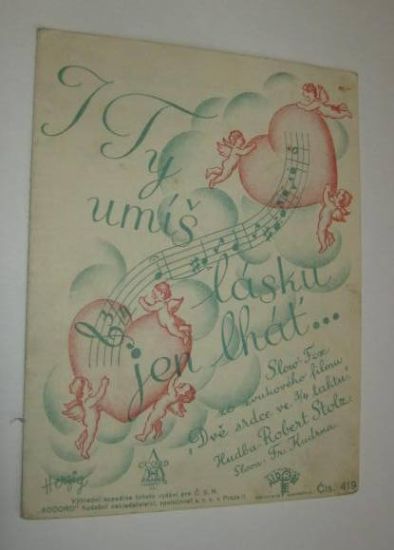 I Ty
umíš
lásku
jen lhát...
Slow-Fox
ze zvukového filmu
"Dvě srdce ve 3/4 taktu"
Hudba: Robert Stolz
Slova: Fr. Kudrna
Herzig
ACCORD
PRAHA
Výhradní expedice tohoto vydání pro Č. S. R.
"ACCORD" hudební nakladatelství, společnost s. r. o. Praha II
Čís. 419